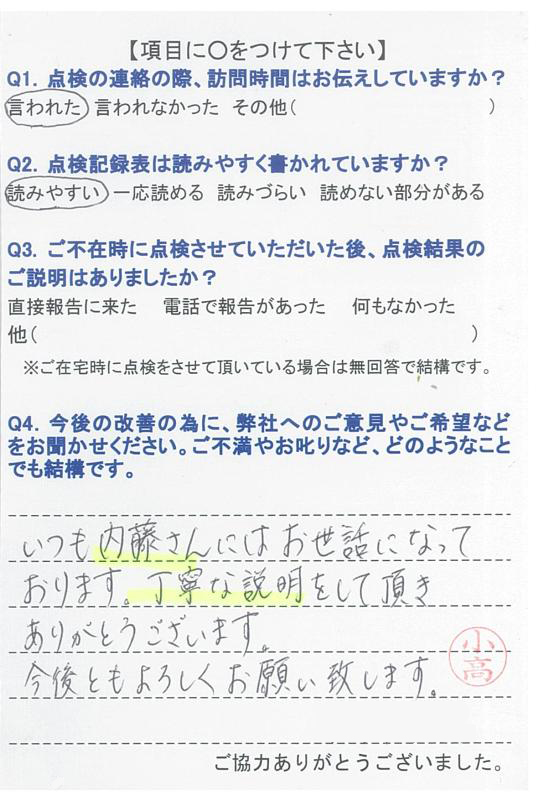 【項目に○をつけて下さい】
Q1. 点検の連絡の際、訪問時間はお伝えしていますか？
言われた 言われなかった その他（ ）
Q2. 点検記録表は読みやすく書かれていますか？
読みやすい 一応読める 読みづらい 読めない部分がある
Q3. ご不在時に点検させていただいた後、点検結果の
ご説明はありましたか？
直接報告に来た 電話で報告があった 何もなかった
他（ ）
※ご在宅時に点検をさせて頂いている場合は無回答で結構です。
Q4. 今後の改善の為に、弊社へのご意見やご希望など
をお聞かせください。ご不満やお叱りなど、どのようなこと
でも結構です。
いつも内藤さんにはお世話になって
おります。丁寧な説明をして頂き
ありがとうございます。
今後ともよろしくお願い致します。
小高
ご協力ありがとうございました。